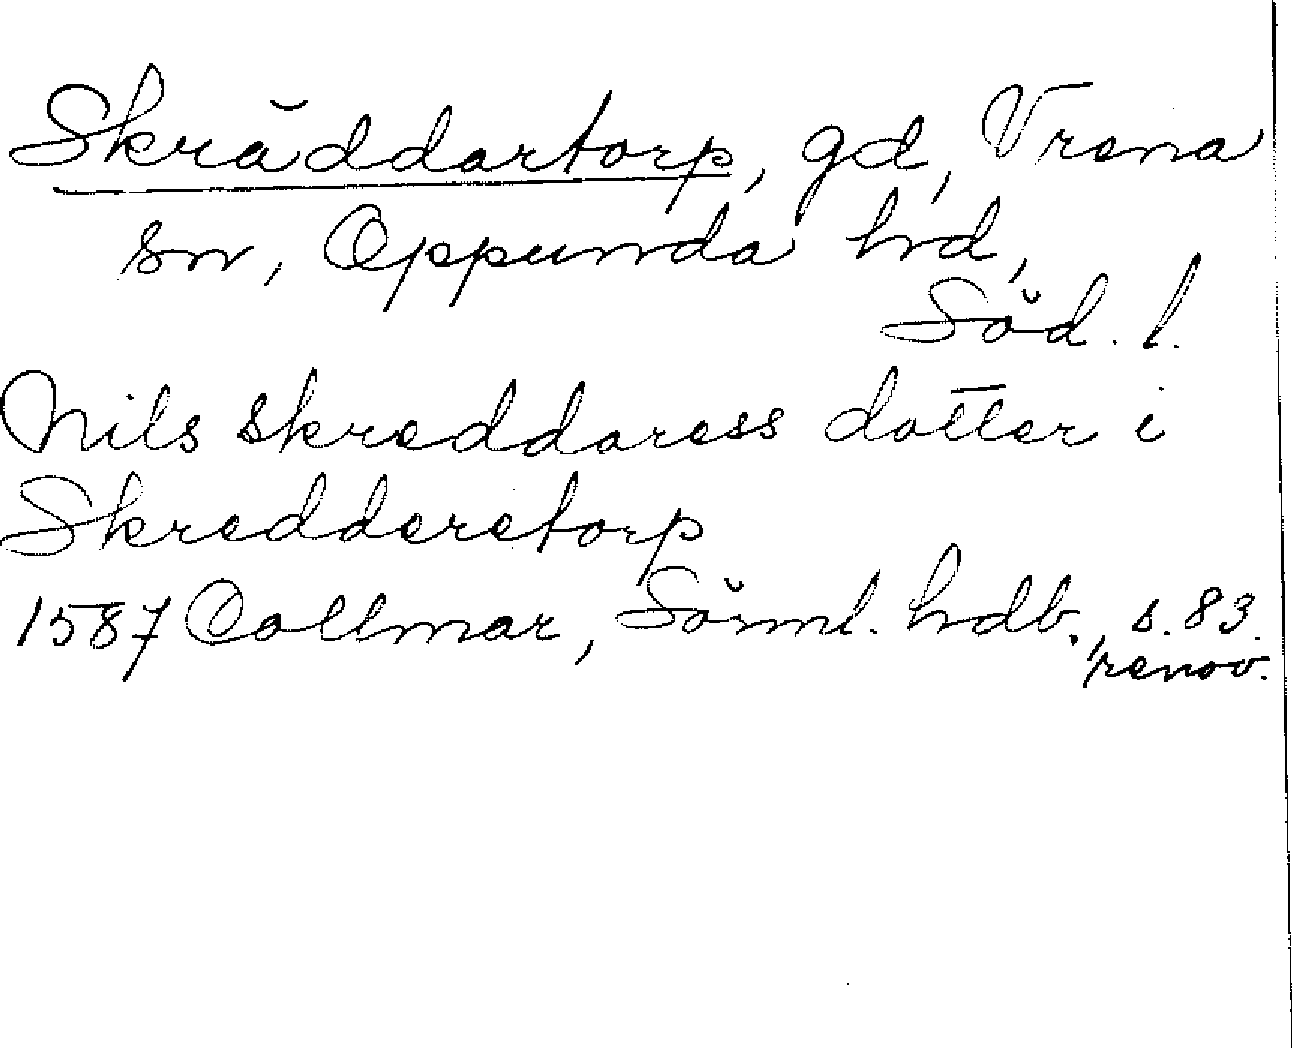 Skräddartorp, gd, Vrena
sn, Oppunda hd,
Söd. l.
Nils skreddaress dotter i
Skredderetorp
1587 Collmar, Sörml. hdb., s. 83.
renov.